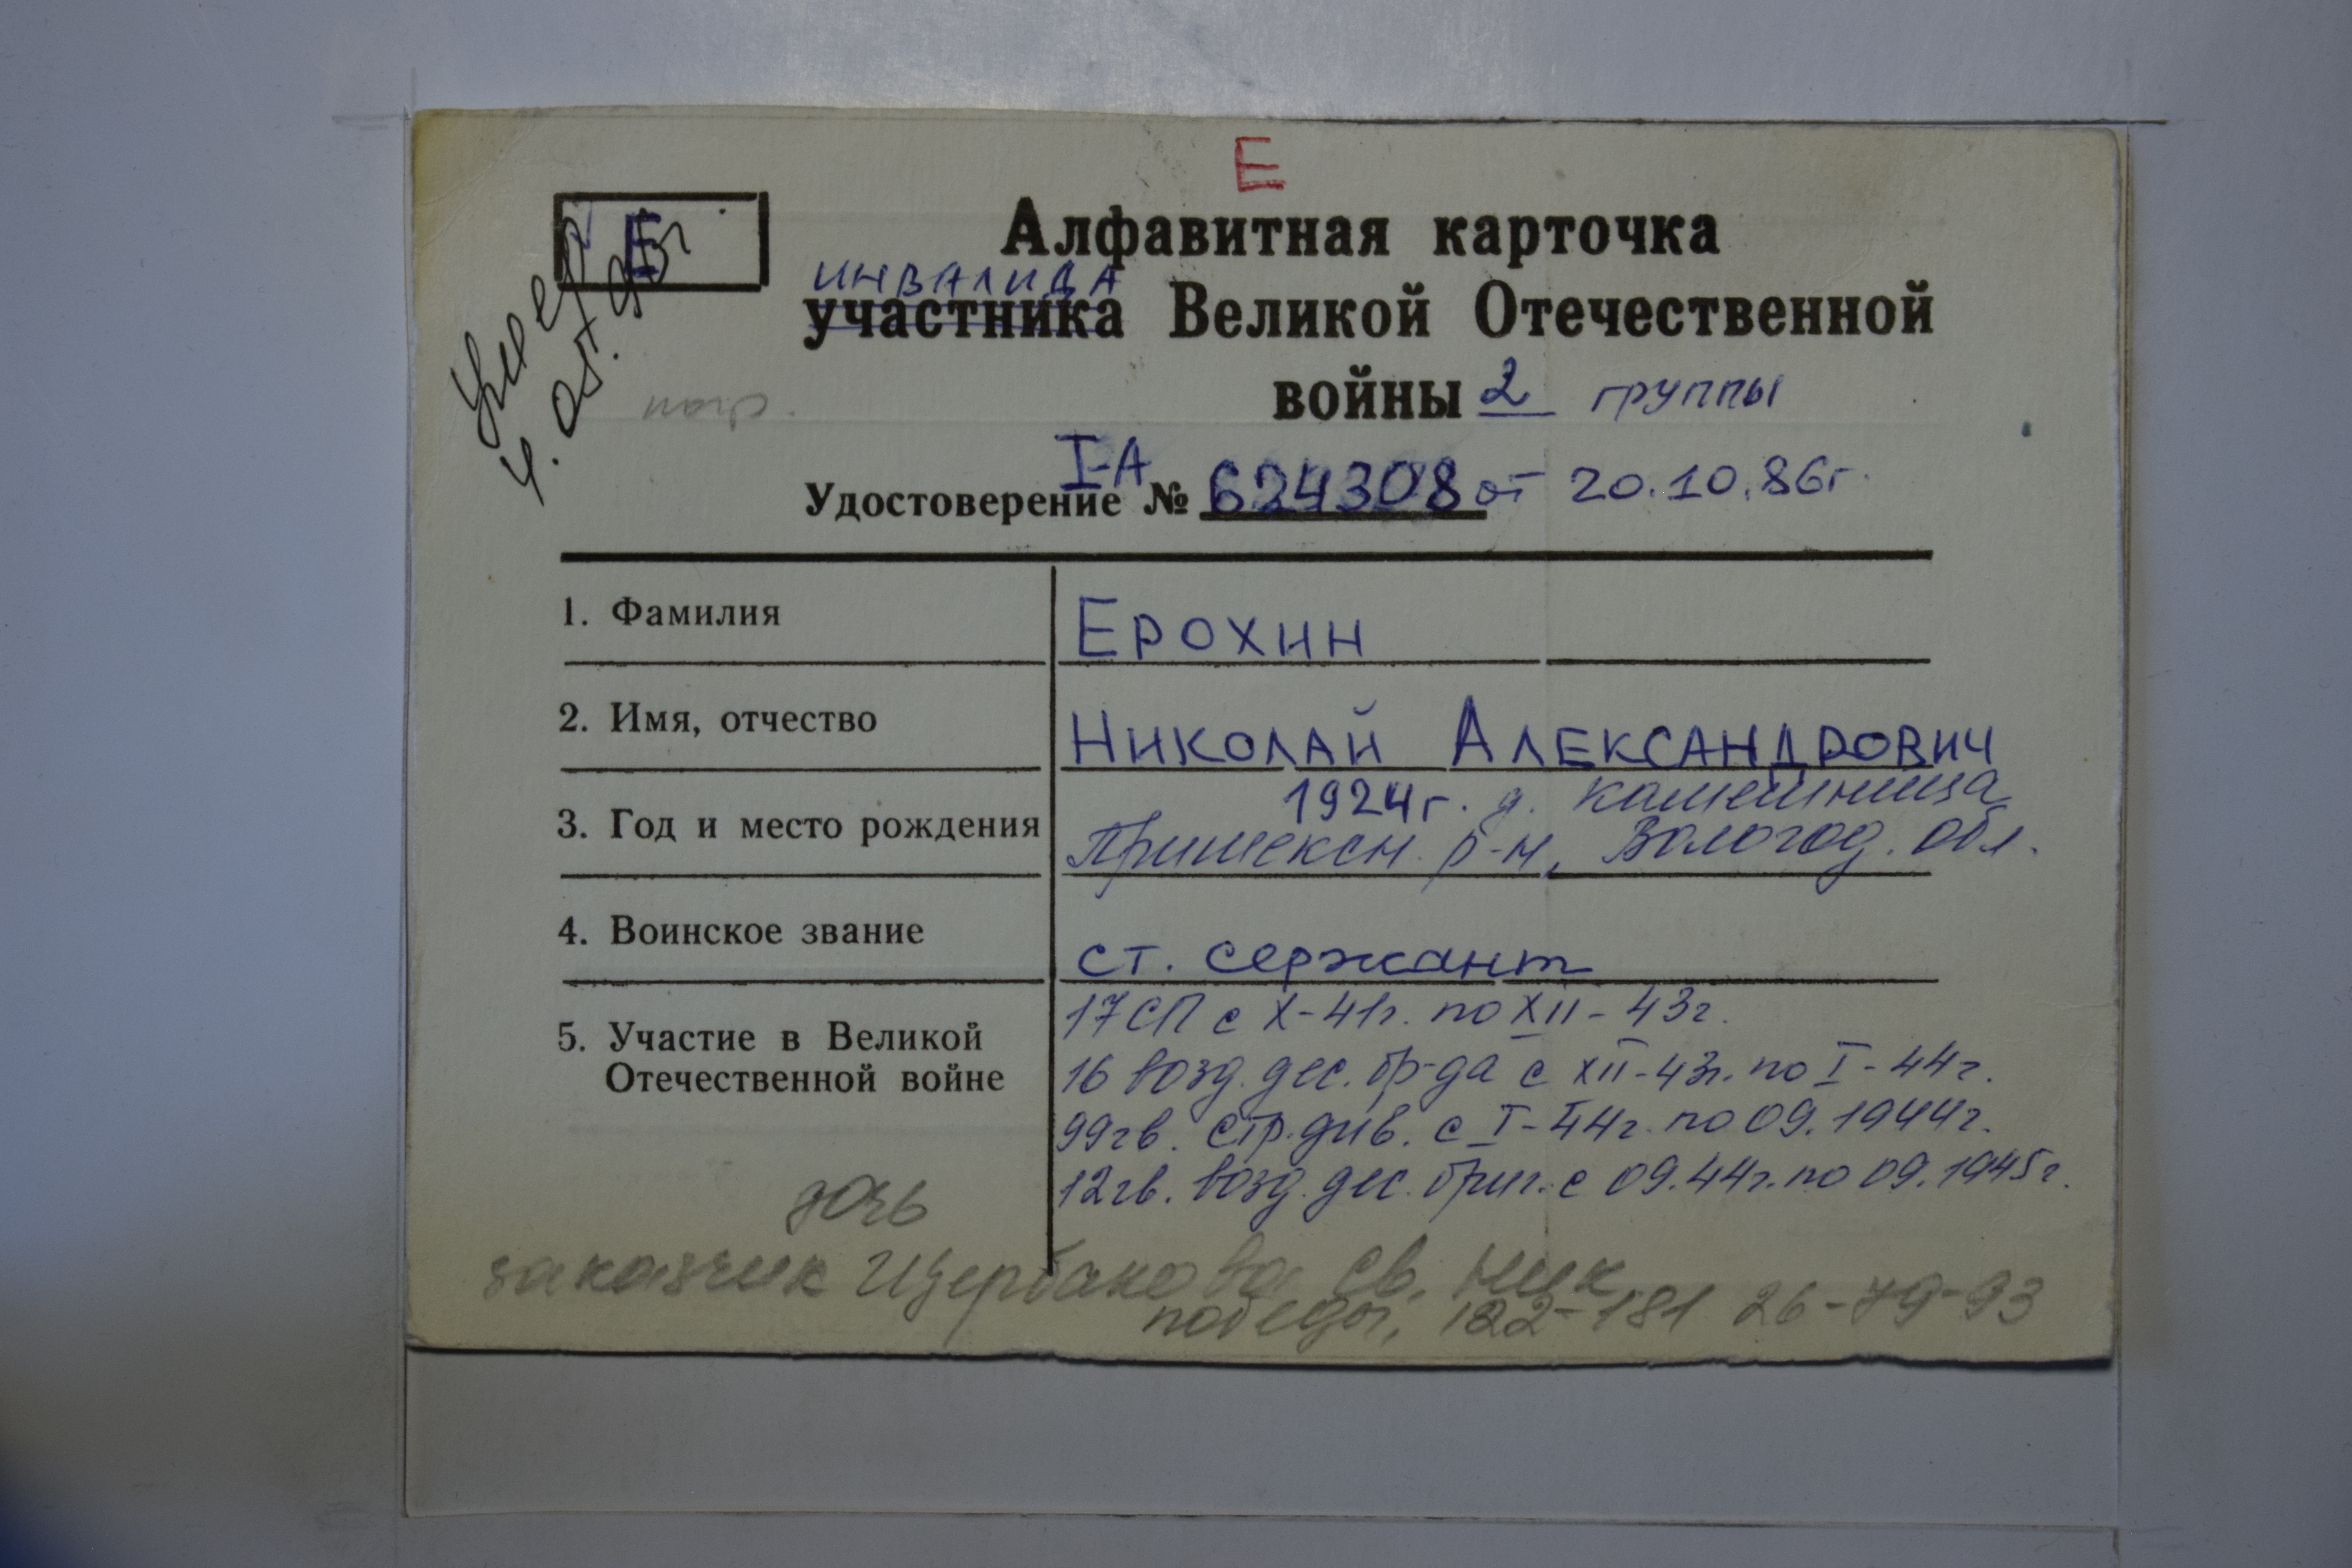 Е
Е
Умер
4.05.95г
Алфавитная карточка
инвалида
участника Великой Отечественной
войны 2 группы
I-А
Удостоверение № 624308 от 20.10.86г.
1. Фамилия
ЕРОХИН
2. Имя, отчество
НИКОЛАЙ АЛЕКСАНДРОВИЧ
3. Год и место рождения
1924г. д.
Пришексн. р-н, Вологод. обл.
4. Воинское звание
ст. сержант
5. Участие в Великой
Отечественной войне
17 СП с X-41г. по XII-43г.
16 возд. дес. бр-да с XII-43г. по I-44г.
99 гв. стр. див. с I-44г. по 09.1944г.
12 гв. возд. дес. бриг. с 09.44г. по 09.1945г.
дочь
заказчик Щербакова Св. Ник
победы, 122-181 26-79-93